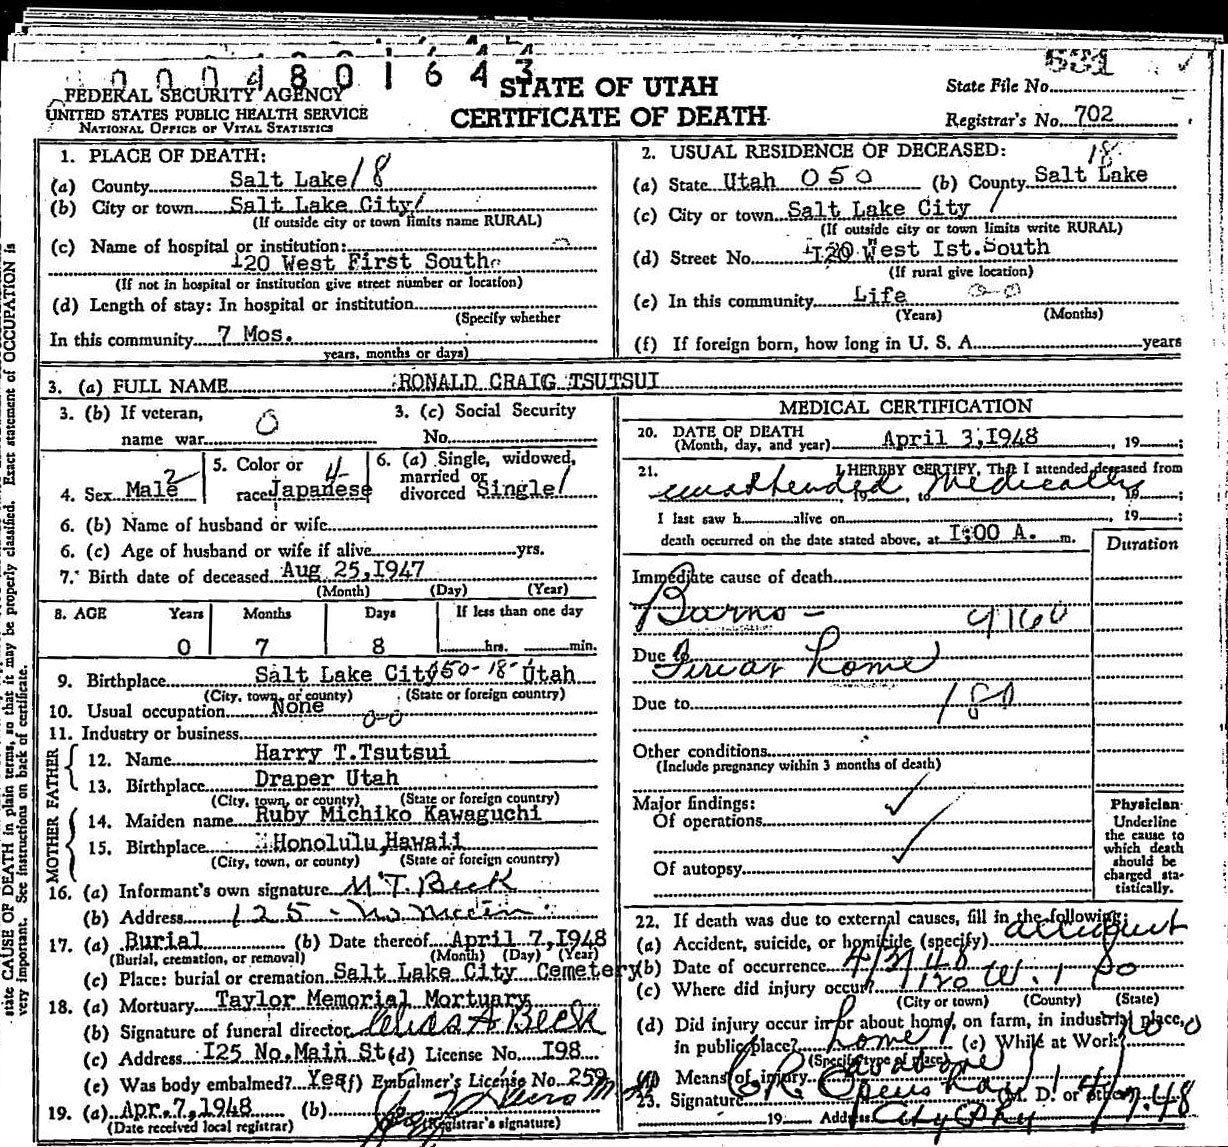 0 0 0 4 8 0 1 6 4 3
FEDERAL SECURITY AGENCY
UNITED STATES PUBLIC HEALTH SERVICE
NATIONAL OFFICE OF VITAL STATISTICS
STATE OF UTAH
CERTIFICATE OF DEATH
State File No. 531
Registrar's No. 702
1. PLACE OF DEATH:
(a) County Salt Lake 18
(b) City or town Salt Lake City
(If outside city or town limits name RURAL)
(c) Name of hospital or institution:
120 West First South
(If not in hospital or institution give street number or location)
(d) Length of stay: In hospital or institution
(Specify whether
In this community 7 Mos.
years, months or days)
2. USUAL RESIDENCE OF DECEASED:
18
(a) State Utah 050 (b) County Salt Lake
(c) City or town Salt Lake City
(If outside city or town limits write RURAL)
(d) Street No. 120 West Ist. South
(If rural give location)
(e) In this community Life
(Years) (Months)
(f) If foreign born, how long in U. S. A. years
3. (a) FULL NAME RONALD CRAIG TSUTSUI
3. (b) If veteran, 0 3. (c) Social Security
name war No.
4. Sex Male 2
5. Color or 4
race Japanese
6. (a) Single, widowed,
married or
divorced Single
6. (b) Name of husband or wife
6. (c) Age of husband or wife if alive yrs.
7. Birth date of deceased Aug 25, I947
(Month) (Day) (Year)
8. AGE Years Months Days If less than one day
0 7 8 hrs. min.
9. Birthplace Salt Lake City 50-18 Utah
(City, town, or county) (State or foreign country)
10. Usual occupation None
11. Industry or business
MOTHER FATHER
12. Name Harry T. Tsutsui
13. Birthplace Draper Utah
(City, town, or county) (State or foreign country)
14. Maiden name Ruby Michiko Kawaguchi
15. Birthplace Honolulu, Hawaii
(City, town, or county) (State or foreign country)
16. (a) Informant's own signature M. T. Beck
(b) Address 125 - No. Main
17. (a) Burial (b) Date thereof April 7, I948
(Burial, cremation, or removal) (Month) (Day) (Year)
(c) Place: burial or cremation Salt Lake City Cemetery
18. (a) Mortuary Taylor Memorial Mortuary
(b) Signature of funeral director A Beck
(c) Address I25 No. Main St (d) License No. I98
(e) Was body embalmed? Yes (f) Embalmer's License No. 259
19. (a) Apr. 7, 1948 (b)
(Date received local registrar) (Registrar's signature)
MEDICAL CERTIFICATION
20. DATE OF DEATH
(Month, day, and year) April 3, I948, 19 ;
21. I HEREBY CERTIFY, That I attended deceased from
unattended medically
I last saw h alive on , 19 ;
death occurred on the date stated above, at I:00 A. m.
Duration
Immediate cause of death
Burns -
Due to
home
Due to 180
Other conditions
(Include pregnancy within 3 months of death)
Major findings:
Of operations
Of autopsy
Physician
Underline
the cause to
which death
should be
charged sta-
tistically.
22. If death was due to external causes, fill in the following:
(a) Accident, suicide, or homicide (specify) accident
(b) Date of occurrence 4/3/48
(c) Where did injury occur 120 W. 1 So
(City or town) (County) (State)
(d) Did injury occur in or about home, on farm, in industrial place,
in public place? home (e) While at Work? no
(Specify type of place)
(f) Means of injury
23. Signature (M. D. or other)
19 Address City Phy
state CAUSE OF DEATH in plain terms, so that it may be properly classified. Exact statement of OCCUPATION is
very important. See instructions on back of certificate.